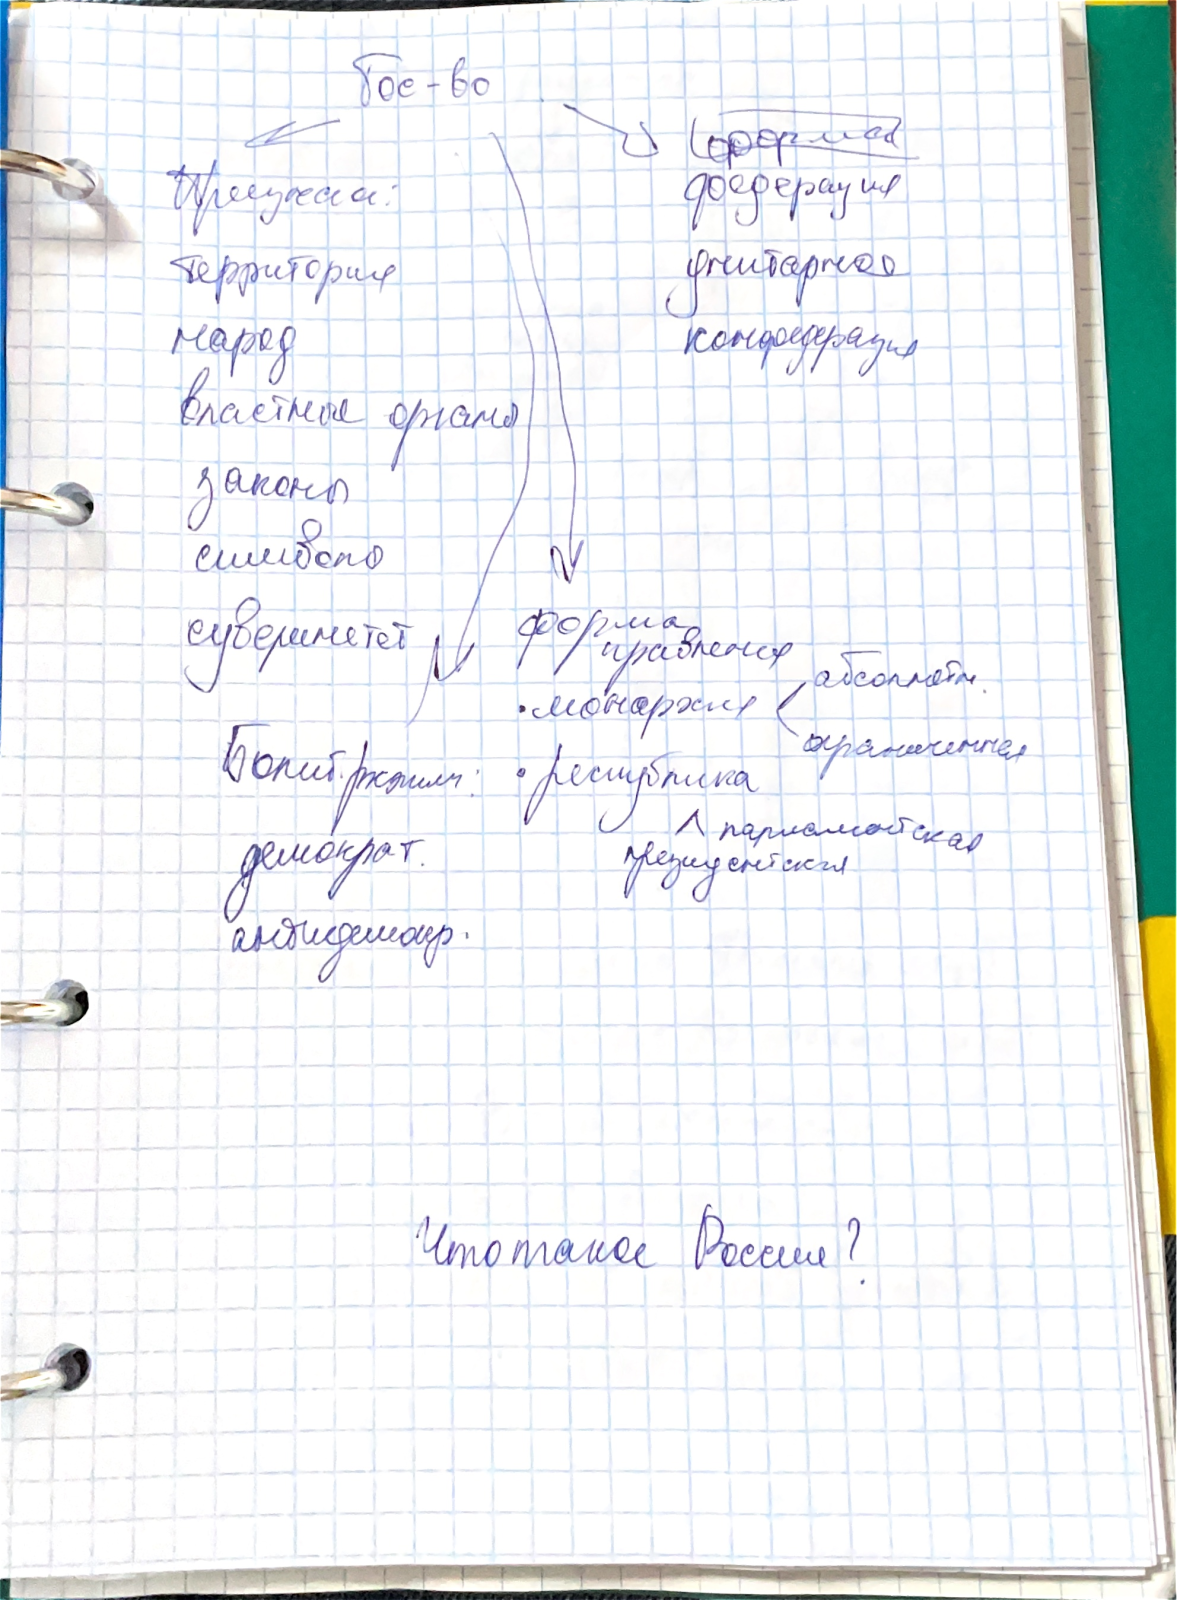 Гос-во
Признаки:
территория
народ
властные органы
законы
символы
суверинетет
форма
федерация
унитарное
конфедерация
форма
правления
• монархия
абсолютн.
ограниченная
• республика
парламентская
президентская
Полит. режим:
демократ.
антидемокр.
Что такое Россия?